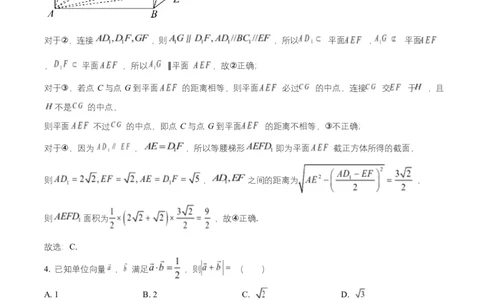 A B E
对于②，连接 AD₁, D₁F, GF ，则 A₁G∥D₁F, AD₁//BC₁//EF ，所以 AD₁ ⊂ 平面 AEF ，A₁G ⊄ 平面 AEF
， D₁F ⊂ 平面 AEF ，所以 A₁G ∥平面 AEF ，故②正确；
对于③，若点 C 与点 G 到平面 AEF 的距离相等，则平面 AEF 必过 CG 的中点，连接 CG 交 EF 于 H ，且
H 不是 CG 的中点，
则平面 AEF 不过 CG 的中点，即点 C 与点 G 到平面 AEF 的距离不相等，③不正确；
对于④，因为 AD₁∥EF ，AE=D₁F ，所以等腰梯形 AEFD₁ 即为平面 AEF 截正方体所得的截面，
则 AD₁=2 2, EF= 2, AE=D₁F= 5 ，AD₁, EF 之间的距离为 AE²−((AD₁−EF)/2)² = 3 2/2 ，
则 AEFD₁ 面积为 1/2×(2 2+ 2)×3 2/2=9/2 ，故④正确.
故选 C.
4. 已知单位向量 a ，b 满足 a⋅b=1/2 ，则|a+b|= （ ）
A. 1 B. 2 C. 2 D. 3